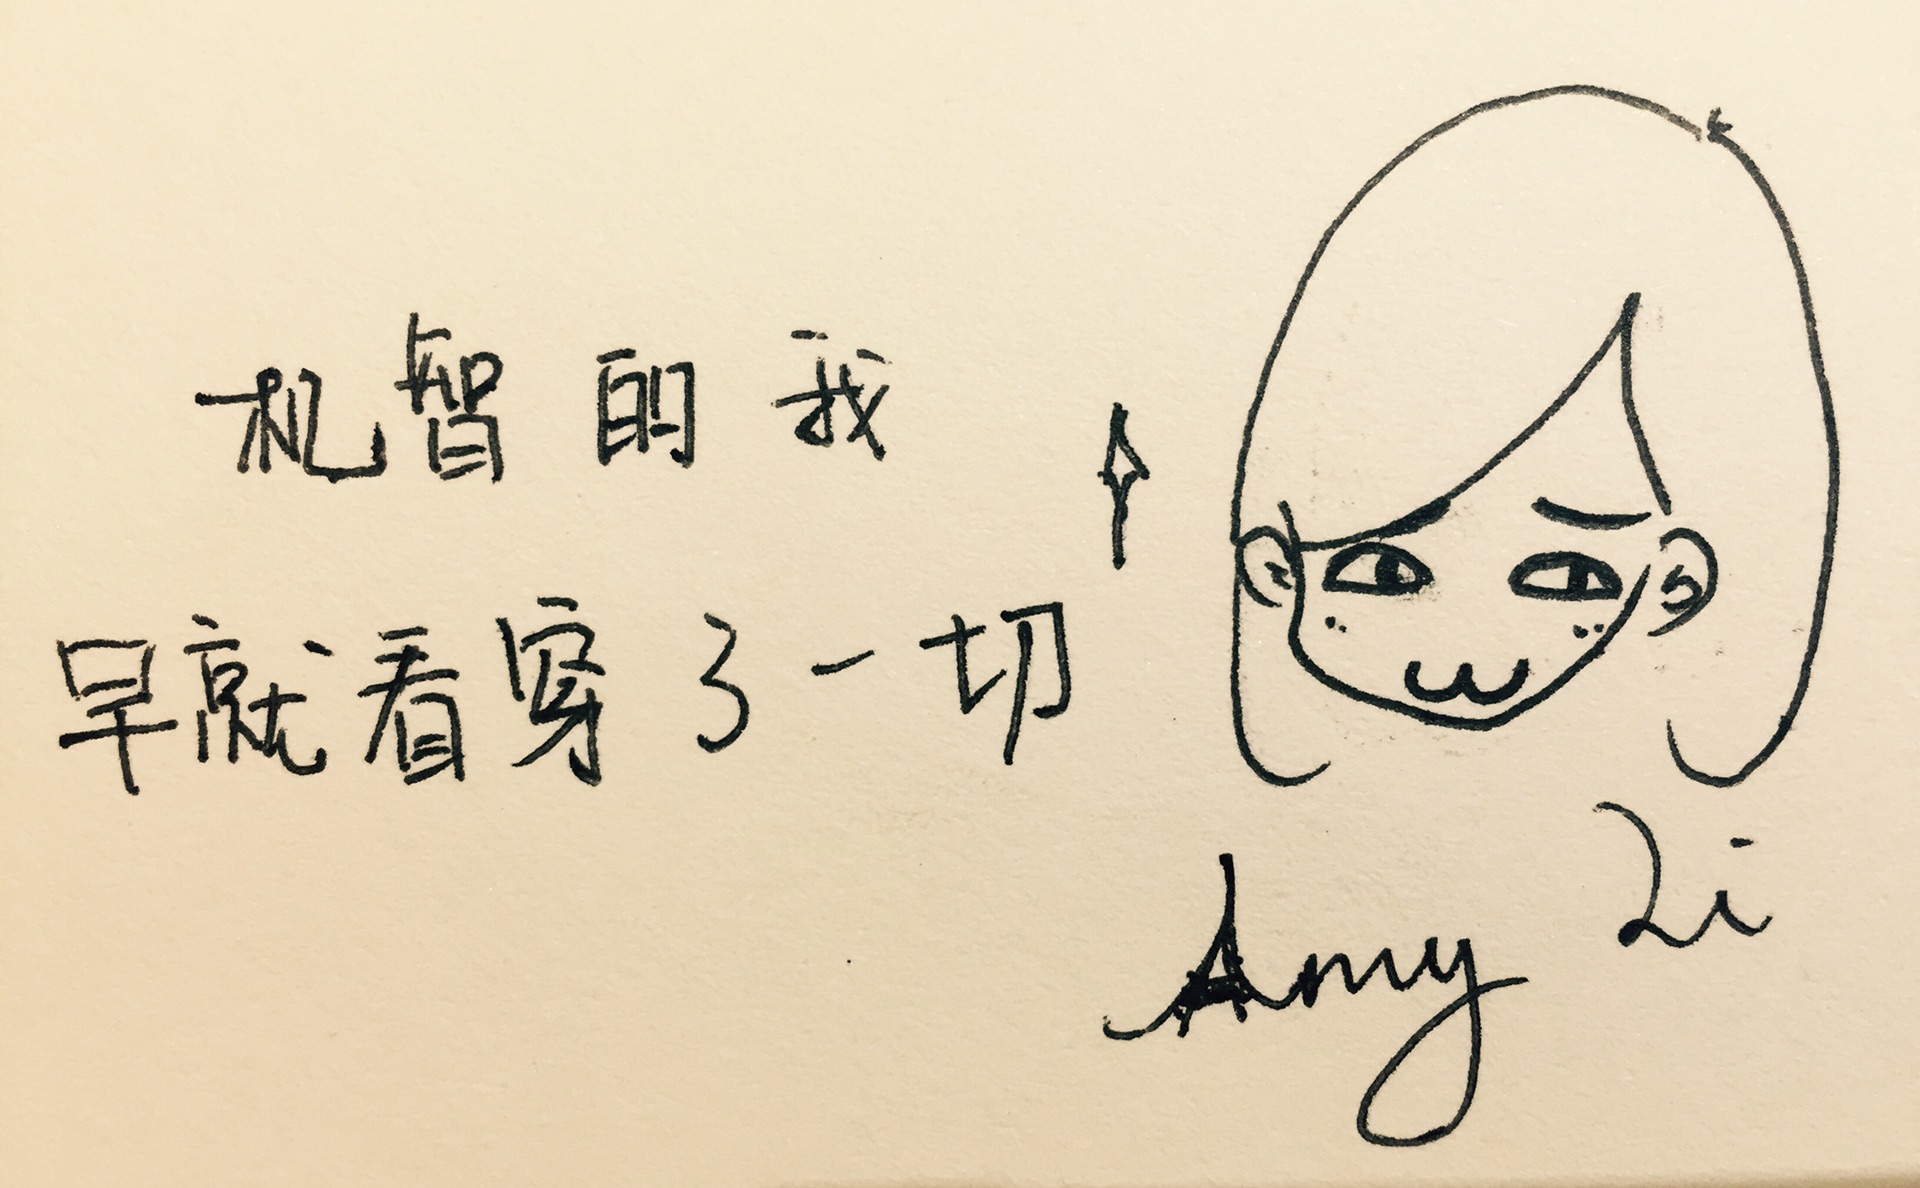 机智的我
早就看穿了一切
Amy Li